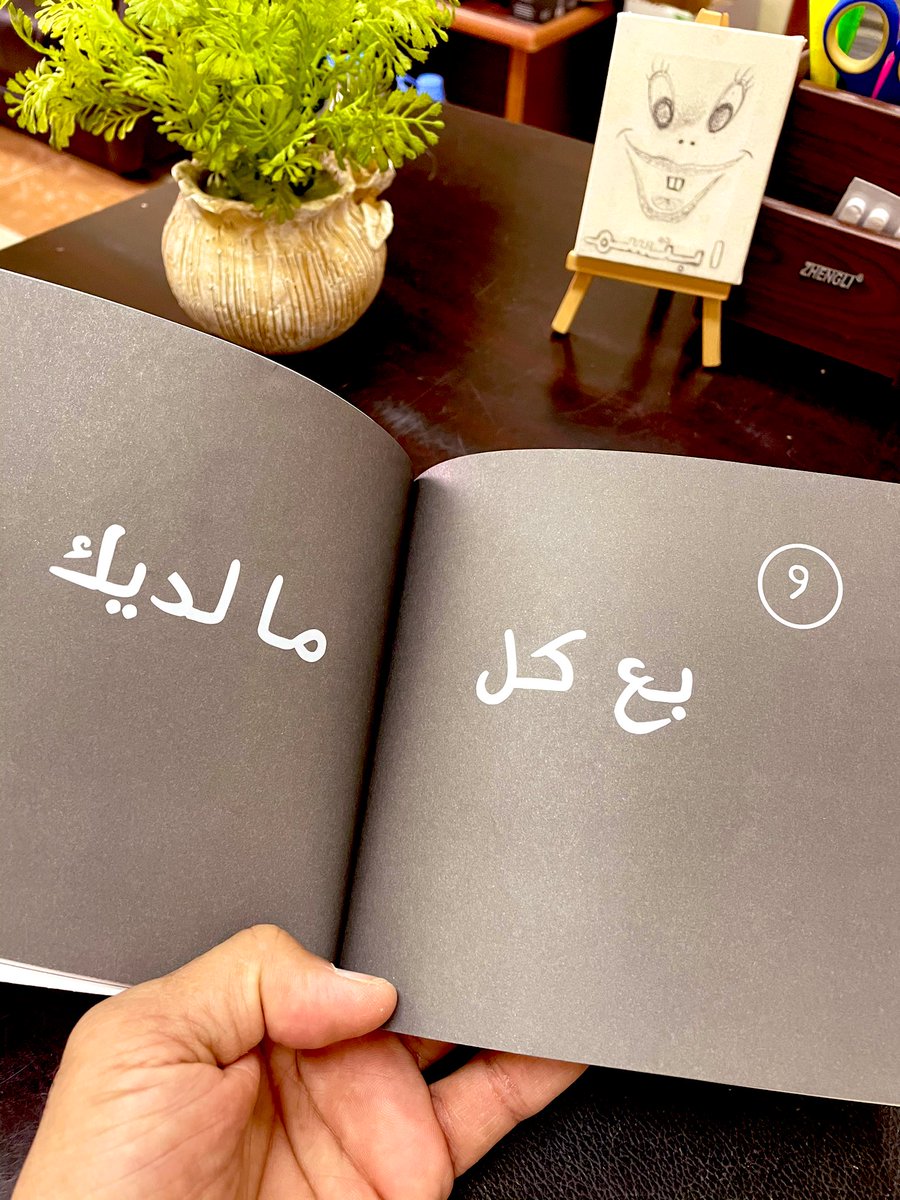 ابتسم
ZHENGLI®
٩
بع كل
ما لديك